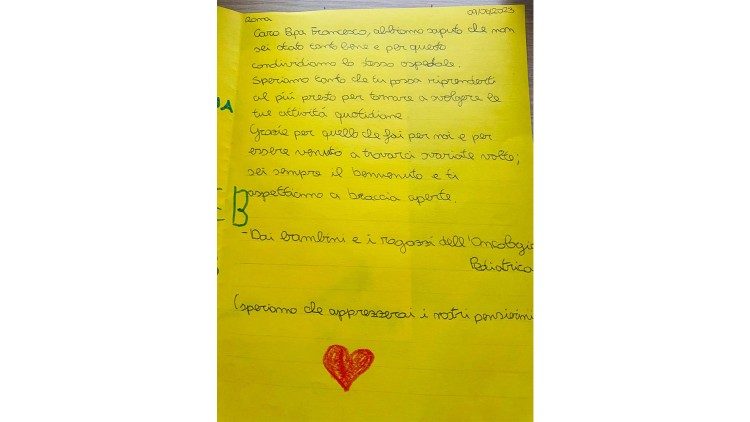 Roma 09/06/2023
Caro Papa Francesco, abbiamo saputo che non
sei stato tanto bene e per questo
condividiamo lo stesso ospedale.
Speriamo tanto che tu possa riprenderti
al più presto per tornare a svolgere le
tue attività quotidiane
Grazie per quello che fai per noi e per
essere venuto a trovarci svariate volte,
sei sempre il benvenuto e ti
aspettiamo a braccia aperte
- Dai bambini e i ragazzi dell'Oncologia
Pediatrica
(speriamo che apprezzerai i nostri pensierini
A
EB